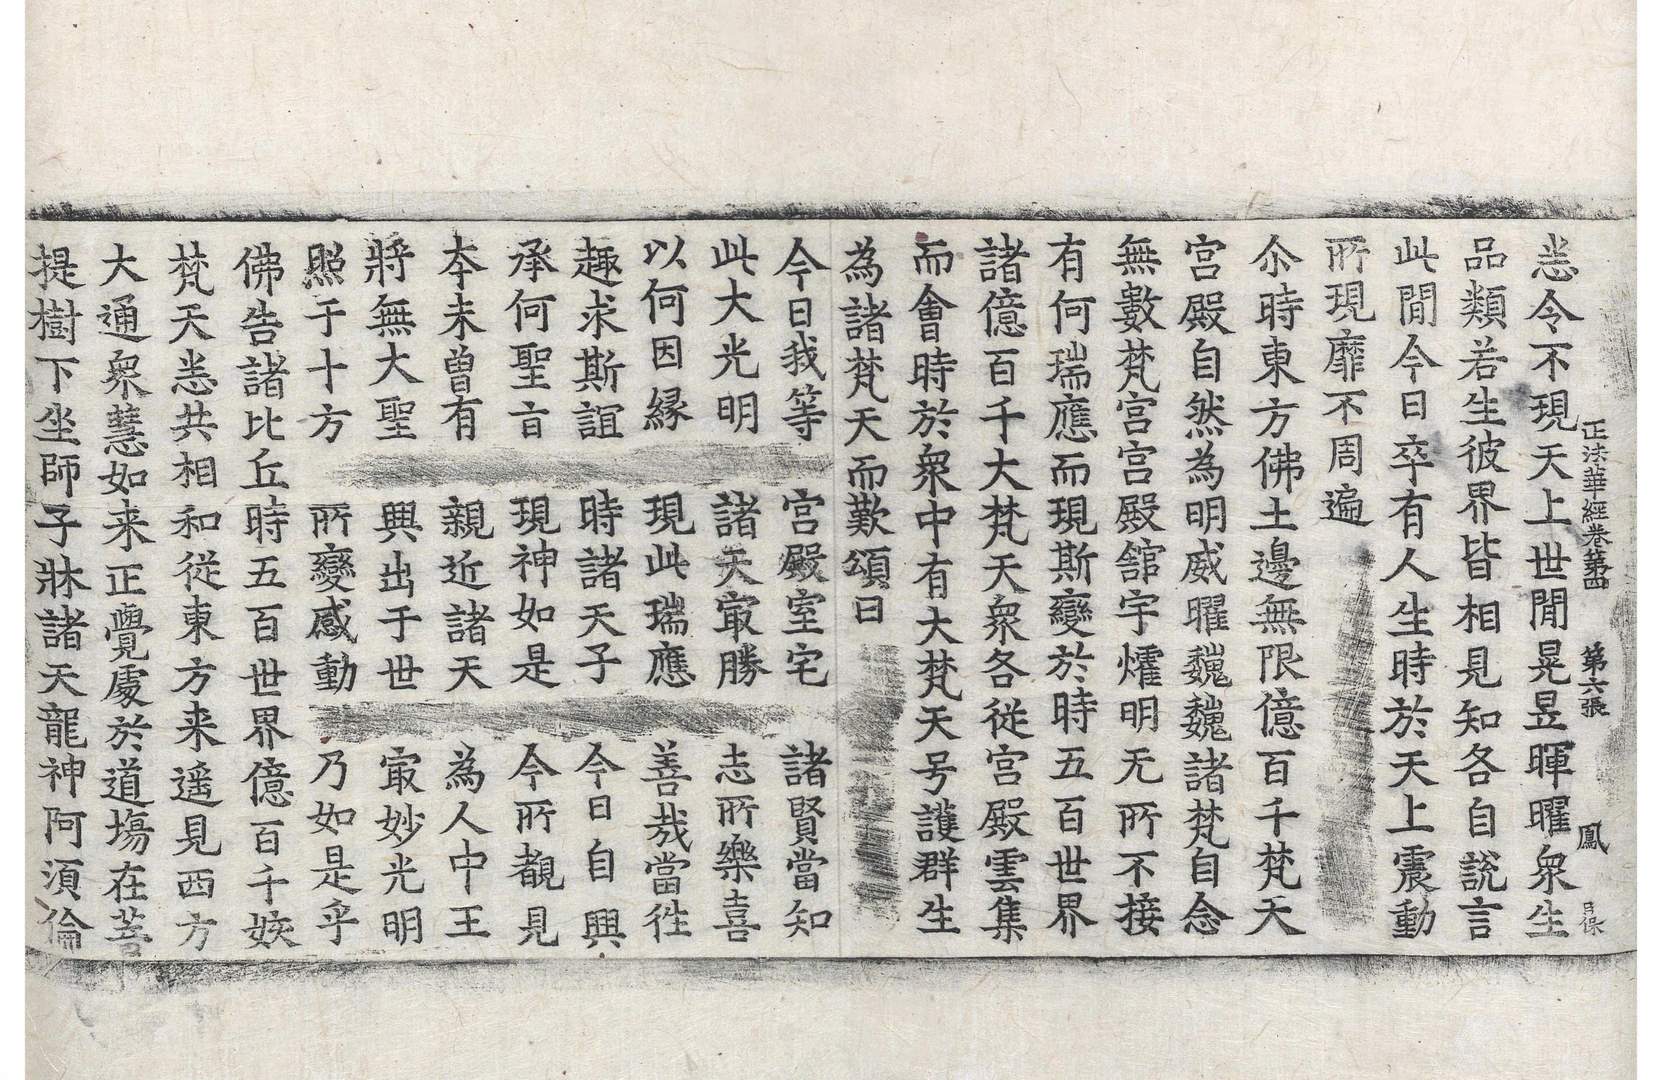 正法華經卷第四　第六張　鳳　日保
恙令不現天上世閒晃昱暉曜衆生
品類若生彼界皆相見知各自說言
此閒今日卒有人生時於天上震動
所現靡不周遍
尒時東方佛土邊無限億百千梵天
宮殿自然為明威曜巍巍諸梵自念
無數梵宮宮殿舘宇燿明无所不接
有何瑞應而現斯變於時五百世界
諸億百千大梵天衆各從宮殿雲集
而會時於衆中有大梵天号護群生
為諸梵天而歎頌曰
今日我等　宮殿室宅　諸賢當知
此大光明　諸天㝡勝　志所樂喜
以何因緣　現此瑞應　善哉當往
趣求斯誼　時諸天子　今日自興
承何聖旨　現神如是　今所覩見
本未曾有　親近諸天　為人中王
將無大聖　興出于世　㝡妙光明
照于十方　所變感動　乃如是乎
佛告諸比丘時五百世界億百千姟
梵天恙共相和從東方来遥見西方
大通衆慧如来正覺處於道場在菩
提樹下坐師子牀諸天龍神阿須倫